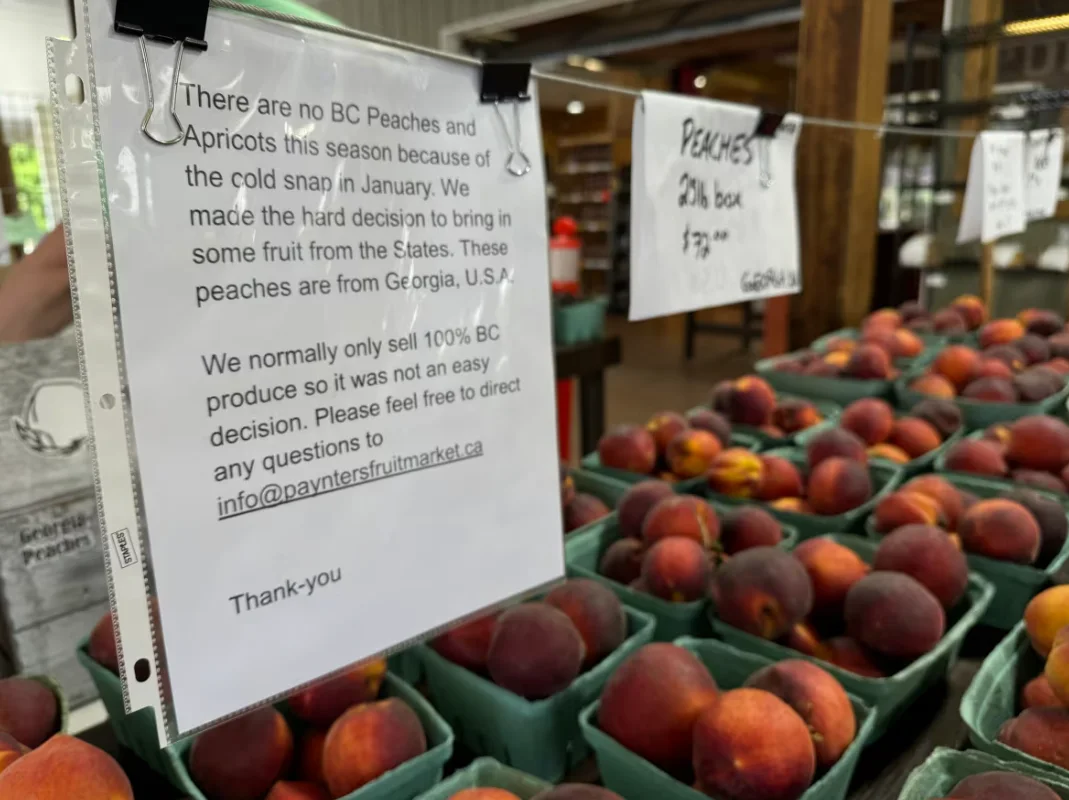 There are no BC Peaches and
Apricots this season because of
the cold snap in January. We
made the hard decision to bring in
some fruit from the States. These
peaches are from Georgia, U.S.A.
We normally only sell 100% BC
produce so it was not an easy
decision. Please feel free to direct
any questions to
info@payntersfruitmarket.ca
Thank-you
STAPLES
PEACHES
25lb box
$72.00
Georgia
Peaches